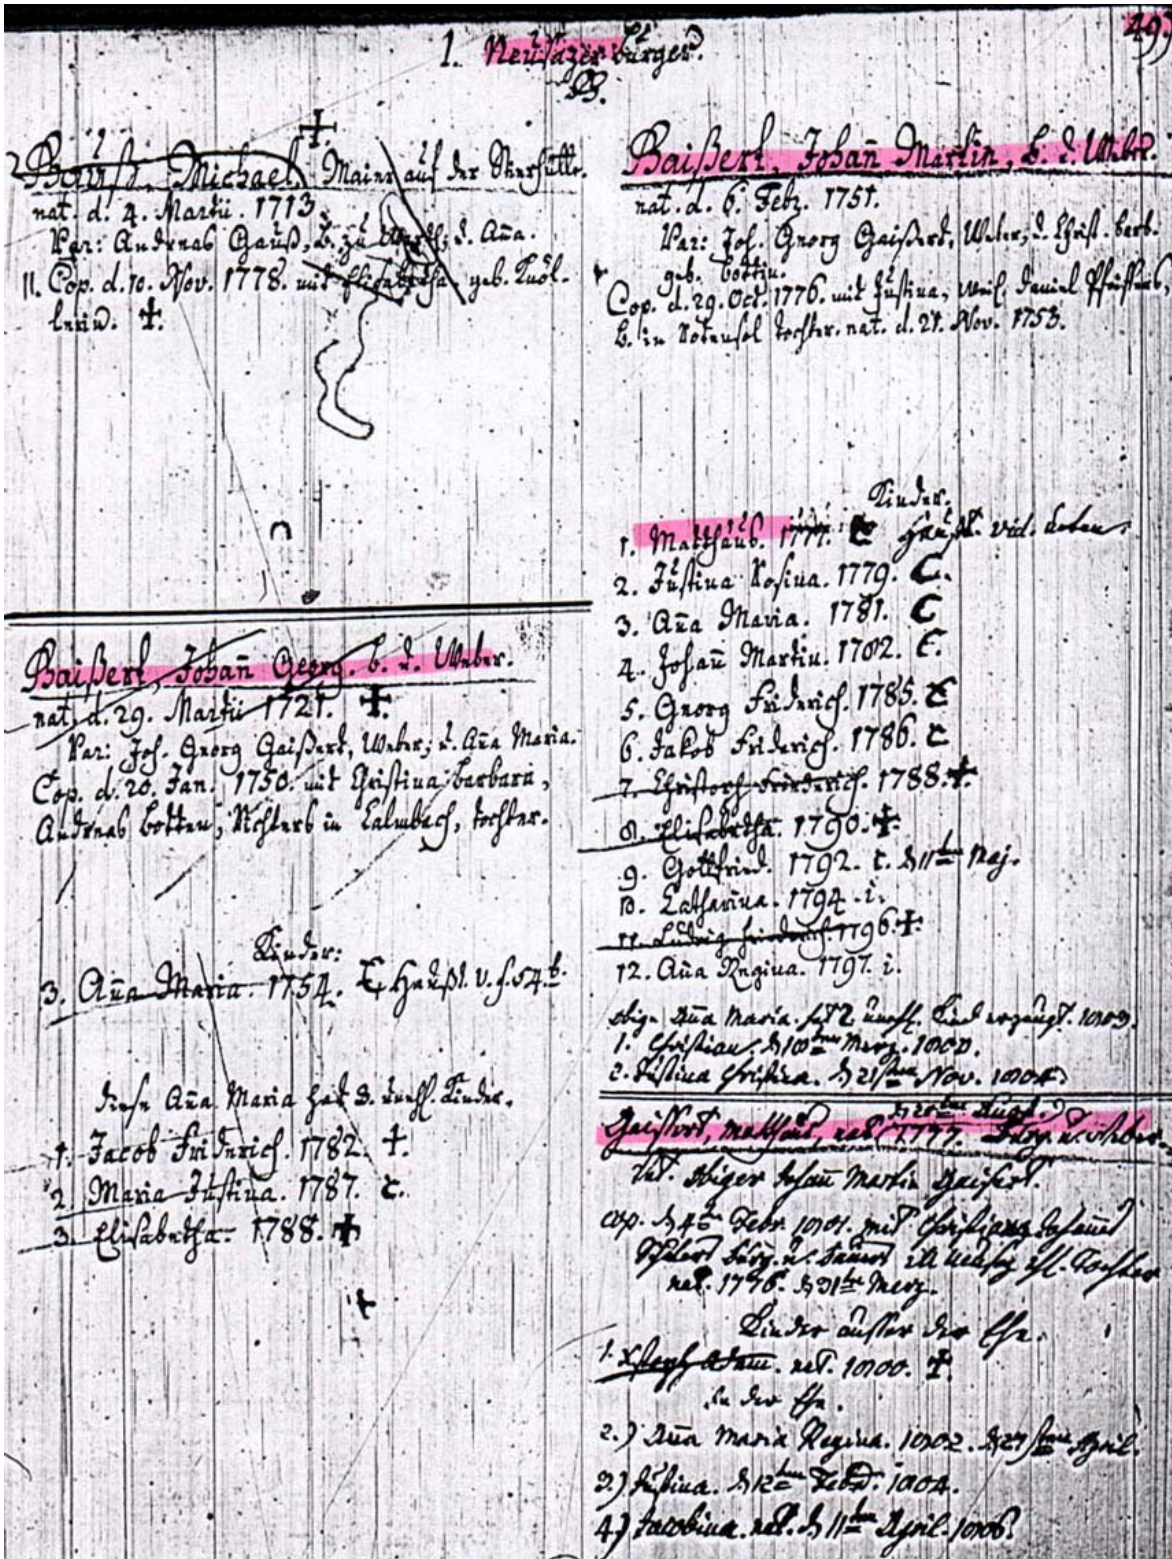 49.
1. Neusazer Bürger.
G.
Gauß, Michael, Maier auf der
nat. d. 4. Martii. 1713.
Par: Andreas Gauß, B. zu u. Aña.
II. Cop. d. 10. Nov. 1778. mit Elisabetha, geb. Knöl-
lerin. †.
Gaißert, Johañ Georg, b. u. Weber.
nat. d. 29. Martii 1721. †.
Par: Joh. Georg Gaißert, Weber; u. Aña Maria.
Cop. d. 20. Jan. 1750. mit Christina Barbara,
Andreas Botten, Richters in Calmbach, Tochter.
Kinder:
3. Aña Maria. 1754. C. Haußt. v. f. 54 b.
Diese Aña Maria hat 3. unehl. Kinder.
1. Jacob Friderich. 1782. †.
2. Maria Justina. 1787. C.
3. Elisabetha. 1788. †
Gaißert, Johañ Martin, b. u. Weber.
nat. d. 6. Febr. 1751.
Par: Joh. Georg Gaißert, Weber, u. Christ. Barb.
geb. Bottin.
Cop. d. 29. Oct. 1776. mit Justina, weil. Daniel Pfeiffers,
b. in Rotensol Tochter. nat. d. 21. Nov. 1753.
Kinder.
1. Matthäus. 1777. C Haußt. vid. unten.
2. Justina Rosina. 1779. C.
3. Aña Maria. 1781. C
4. Johañ Martin. 1782. C.
5. Georg Friderich. 1785. C
6. Jakob Friderich. 1786. C
7. Christoph Friderich. 1788. †.
8. Elisabetha. 1790. †.
9. Gottfried. 1792. C. d. 11ten Maj.
10. Catharina. 1794. i.
11. Ludwig Friderich. 1796. †.
12. Aña Regina. 1797. i.
obige Aña Maria hat 2 unehl. Kind erzeugt. 1803.
1. Christian. d. 10ten Merz. 1800.
2. Justina Christina. d. 21sten Nov. 1804.
d. 20ten Augt.
Gaißert, Matthäus, nat. 1777. Burg. u. Weber.
Pat. obiger Johañ Martin Gaißert.
cop. d. 4t Febr. 1801. mit Christiana Johañes
Burg. u. Bauers in Neusaz ehl. Tochter
nat. 1776. d. 31ten Merz.
Kinder ausser der Ehe.
1. Adam. nat. 1800. †.
in der Ehe.
2.) Aña Maria Regina. 1802. d. 27sten April.
3.) Justina. d. 12ten Febr. 1804.
4.) Jacobina. nat. d. 11ten April. 1806.